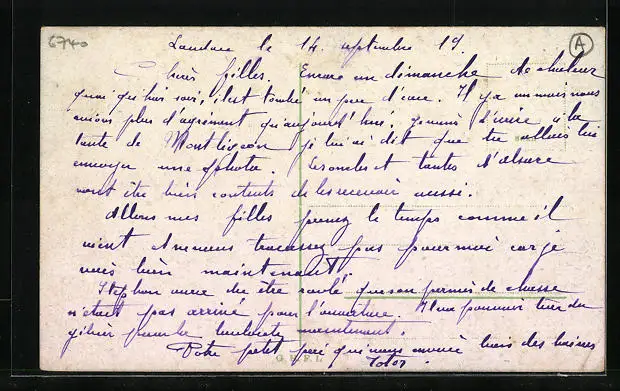 6740
A
le 14 septembre 19
Chères filles. Encore un dimanche de chaleur
quoi qu'hier soir, il est tombé un peu d'eau. Il y a un mois nous
avions plus d'agrément qu'aujourd'hui, d'écrire à la
tante de Montluçon je lui ai dit que tu allais lui
envoyer une photo. Les oncles et tantes d'Alsace
vont être bien contents de les recevoir aussi.
Allons mes filles prenez le temps comme il
vient et ne vous tracassez pas pour moi car je
vais bien maintenant.
Stéphan aura dû être que son permis de chasse
n'était pas arrivé pour l'ouverture. Il va pouvoir tuer du
gibier maintenant.
Votre petit père qui vous envoie bien des baisers
Totor